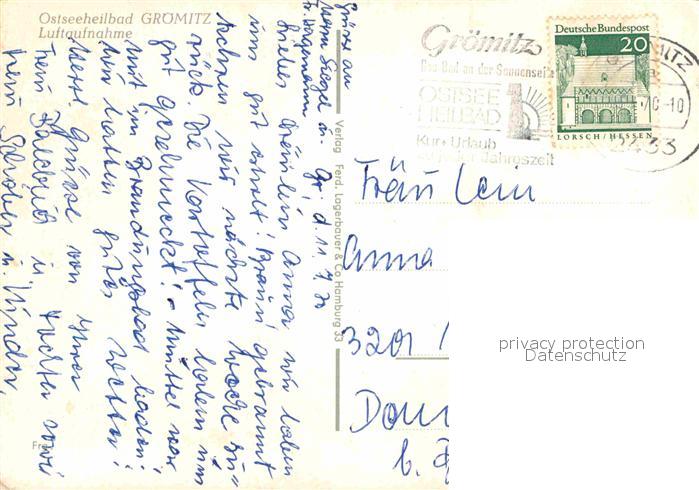 Ostseeheilbad GRÖMITZ
Luftaufnahme
Grüße an
Gr. d. 11.7.70
Liebes Fräulein Anna wir haben
uns gut erholt! Braun gebrannt
kehren wir nächste Woche zu-
rück. Die Kartoffeln haben uns
gut geschmeckt!
mit im Brandungsbad baden!
Wir hatten gutes Wetter!
Herzl. Grüsse von Ihrer
Frau u. Tochter sowie
Herrn u. Kinder,
Verlag Ferd. Lagerbauer & Co Hamburg 33
Grömitz
Das Bad an der Sonnenseite
OSTSEE
HEILBAD
Kur + Urlaub
zu jeder Jahreszeit
Deutsche Bundespost
20
LORSCH/HESSEN
2433
Fräulein
Anna
3201
privacy protection
Datenschutz